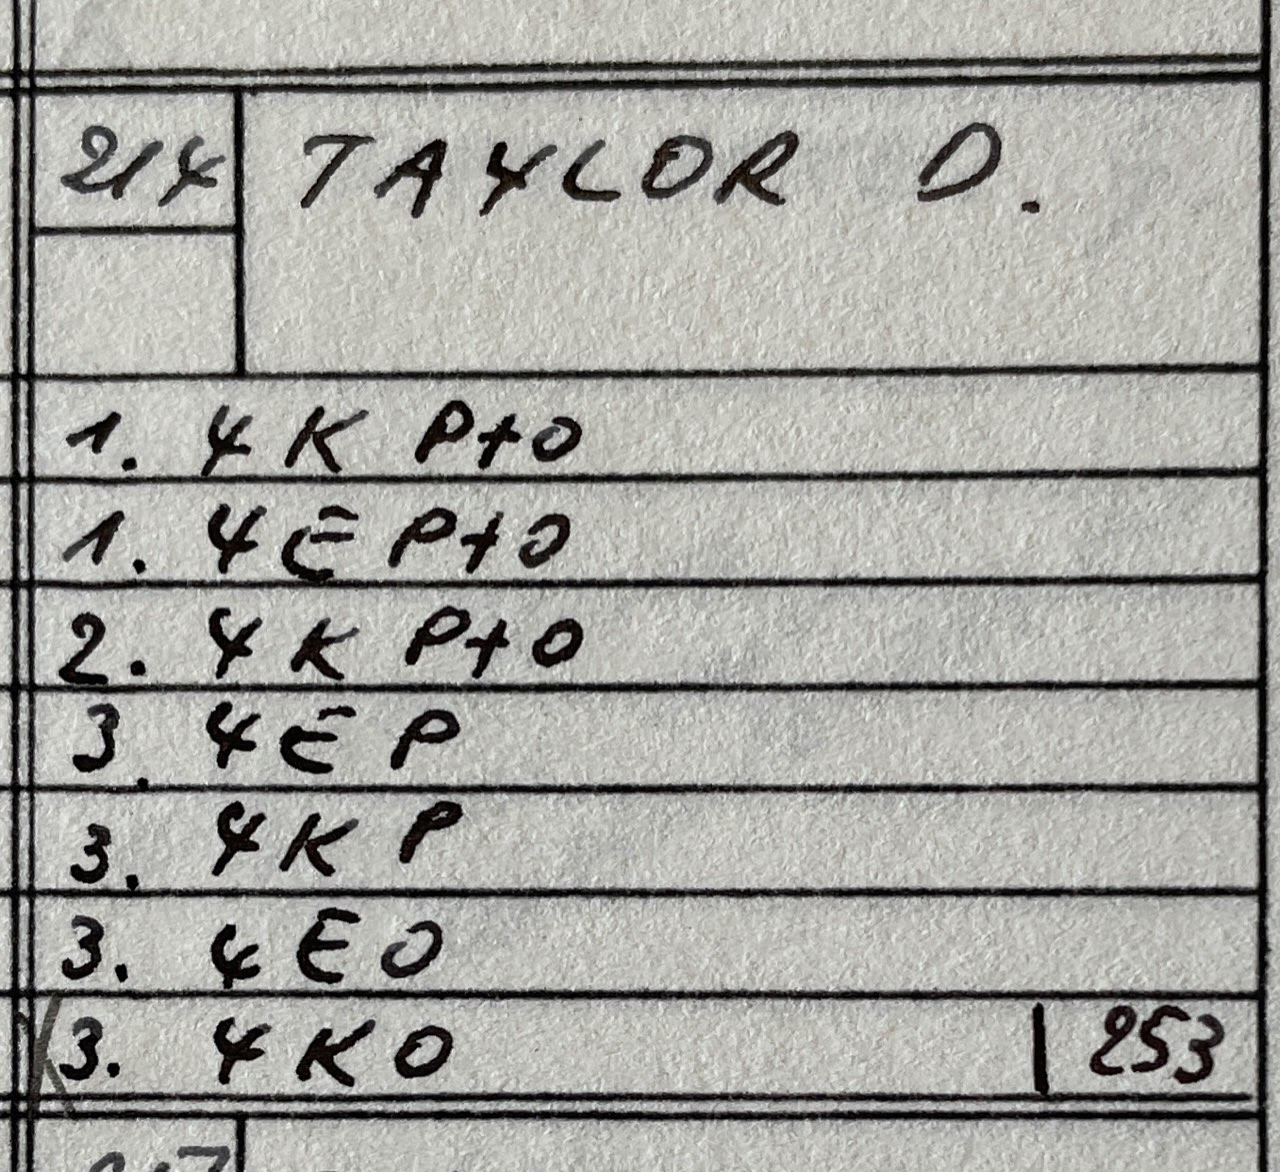 214 TAYLOR D.
1. 4 K P+O
1. 4 E P+O
2. 4 K P+O
3. 4 E P
3. 4 K P
3. 4 E O
3. 4 K O | 253